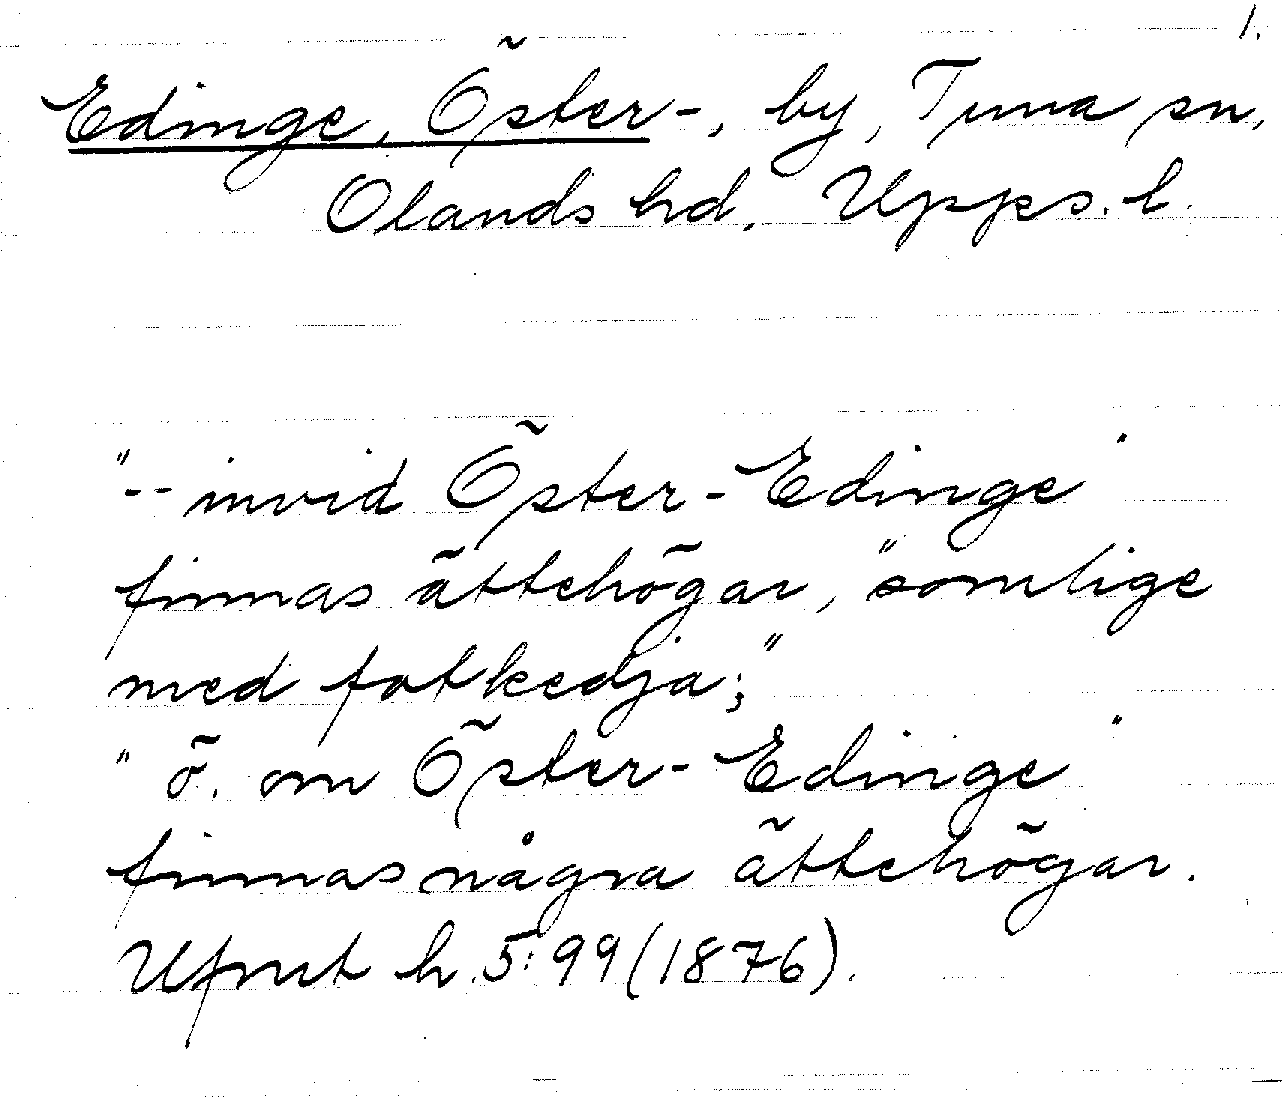 1.
Edinge, Öster-, by, Tuna sn,
Olands hd, Upps. l.
"-- invid Öster-Edinge"
finnas ättehögar, "somlige
med fotkedja;"
" ö. om Öster-Edinge"
finnas några ättehögar.
Ufmt h 5:99 (1876).